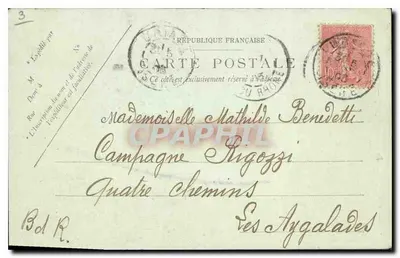 3
RÉPUBLIQUE FRANÇAISE
CARTE POSTALE
Ce côté est exclusivement réservé à l'adresse
Expédié par
M
Dem^t à
Rue
N°
L'inscription du nom et de l'adresse de
l'expéditeur est facultative.
DU RHONE
CPAPHIL
Mademoiselle Mathilde Benedetti
Campagne Rigozzi
Quatre Chemins
Les Aygalades
B d R.